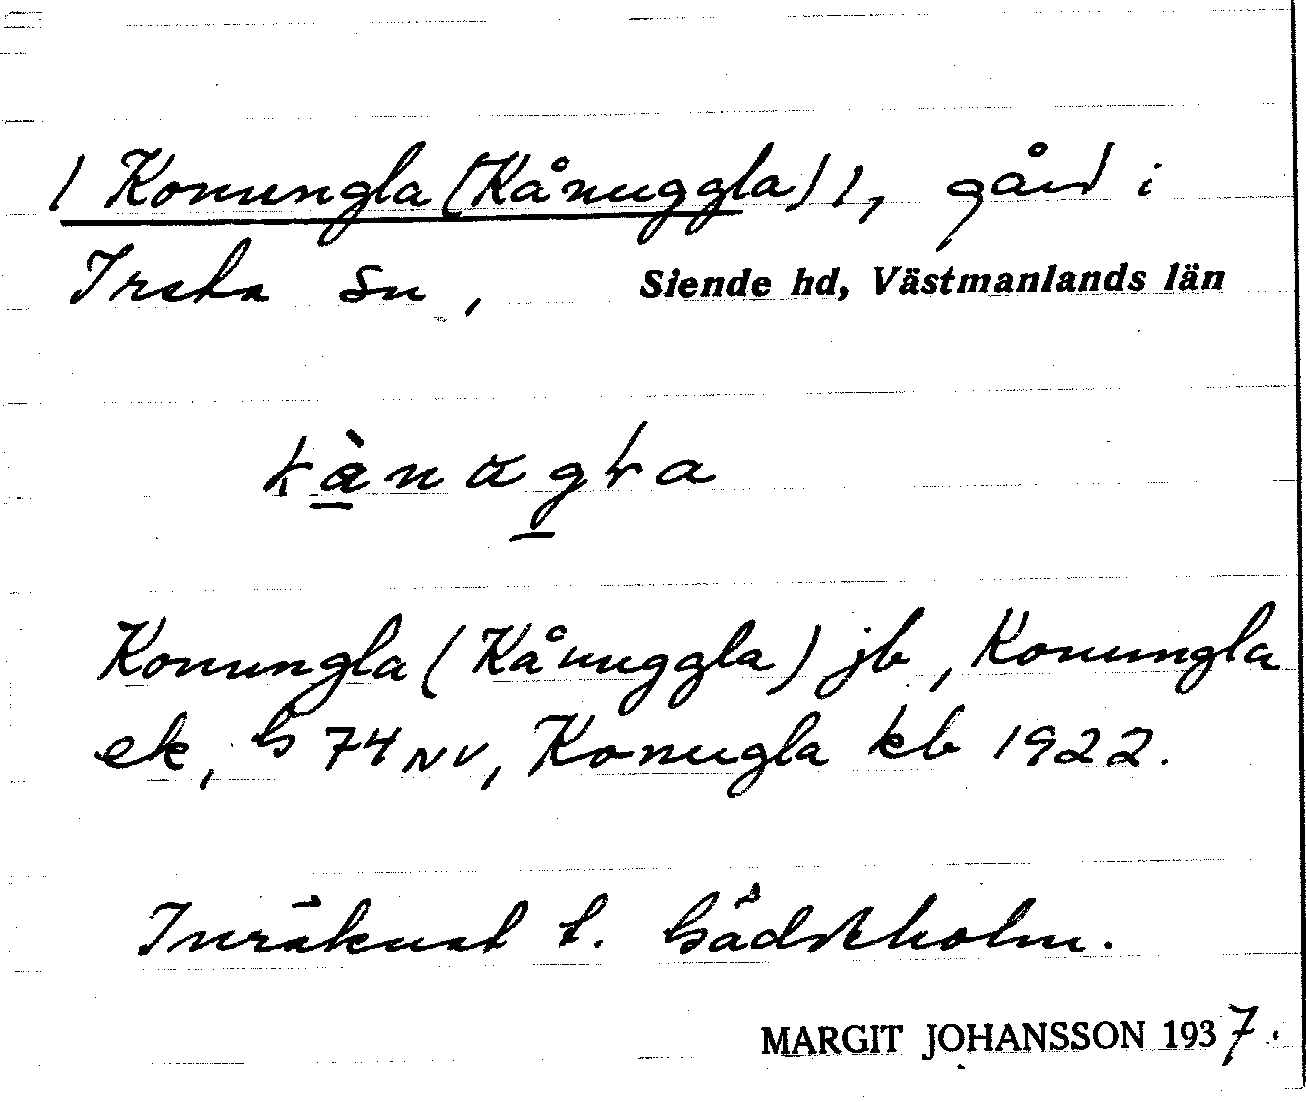 / Konungla (Kånuggla) /, gård i
Irsta sn, Siende hd, Västmanlands län
kànagla
Konungla (Kånuggla) jb, Konungla
ek, G 74 NV, Konugla kb 1922.
Inräknat t. Gädeholm.
MARGIT JOHANSSON 1937.